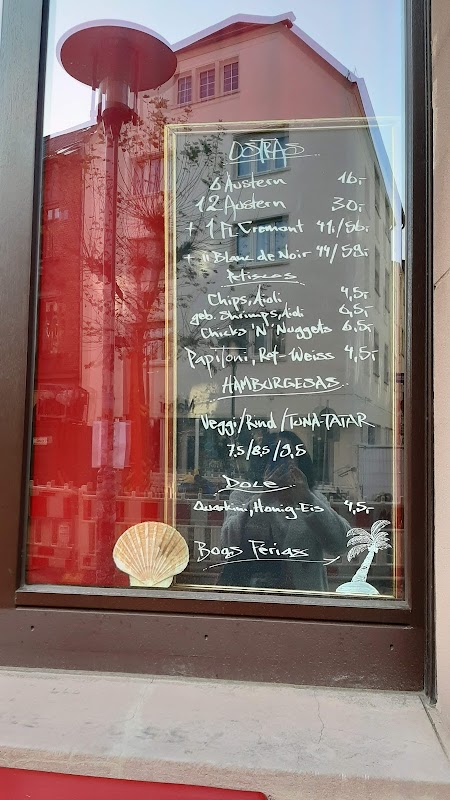 OSTRAS
6 Austern 16,-
12 Austern 30,-
+ 1 Fl. Cremont 41,/56,-
+ " Blanc de Noir 44/59,-
Petiscos
Chips, Aioli 4,5,-
geb. Shrimps, Aioli 6,5,-
Chicks 'N' Nuggets 6,5,-
Papiloni, Rot-Weiss 4,5,-
HAMBURGESAS
Veggi/Rind/TUNA-TATAR
7,5/8,5/9,5
DOCE
Quarkini, Honig-Eis 4,5,-
Boas Ferias